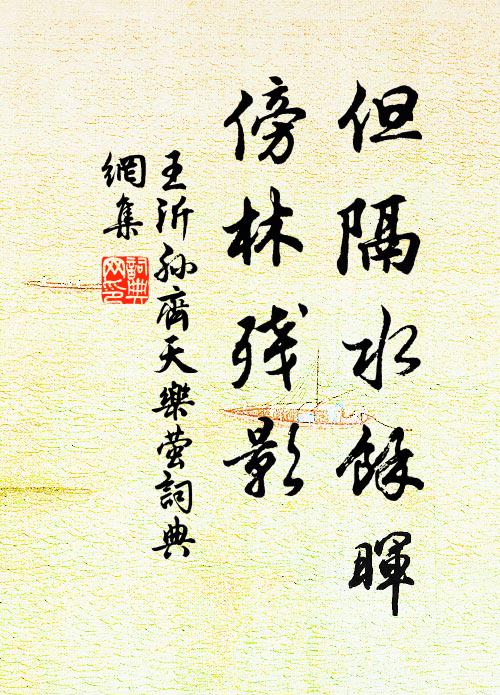 但隔水餘暉
傍林残影
王沂孫齊天樂萤詞典
網集
詞典
网印